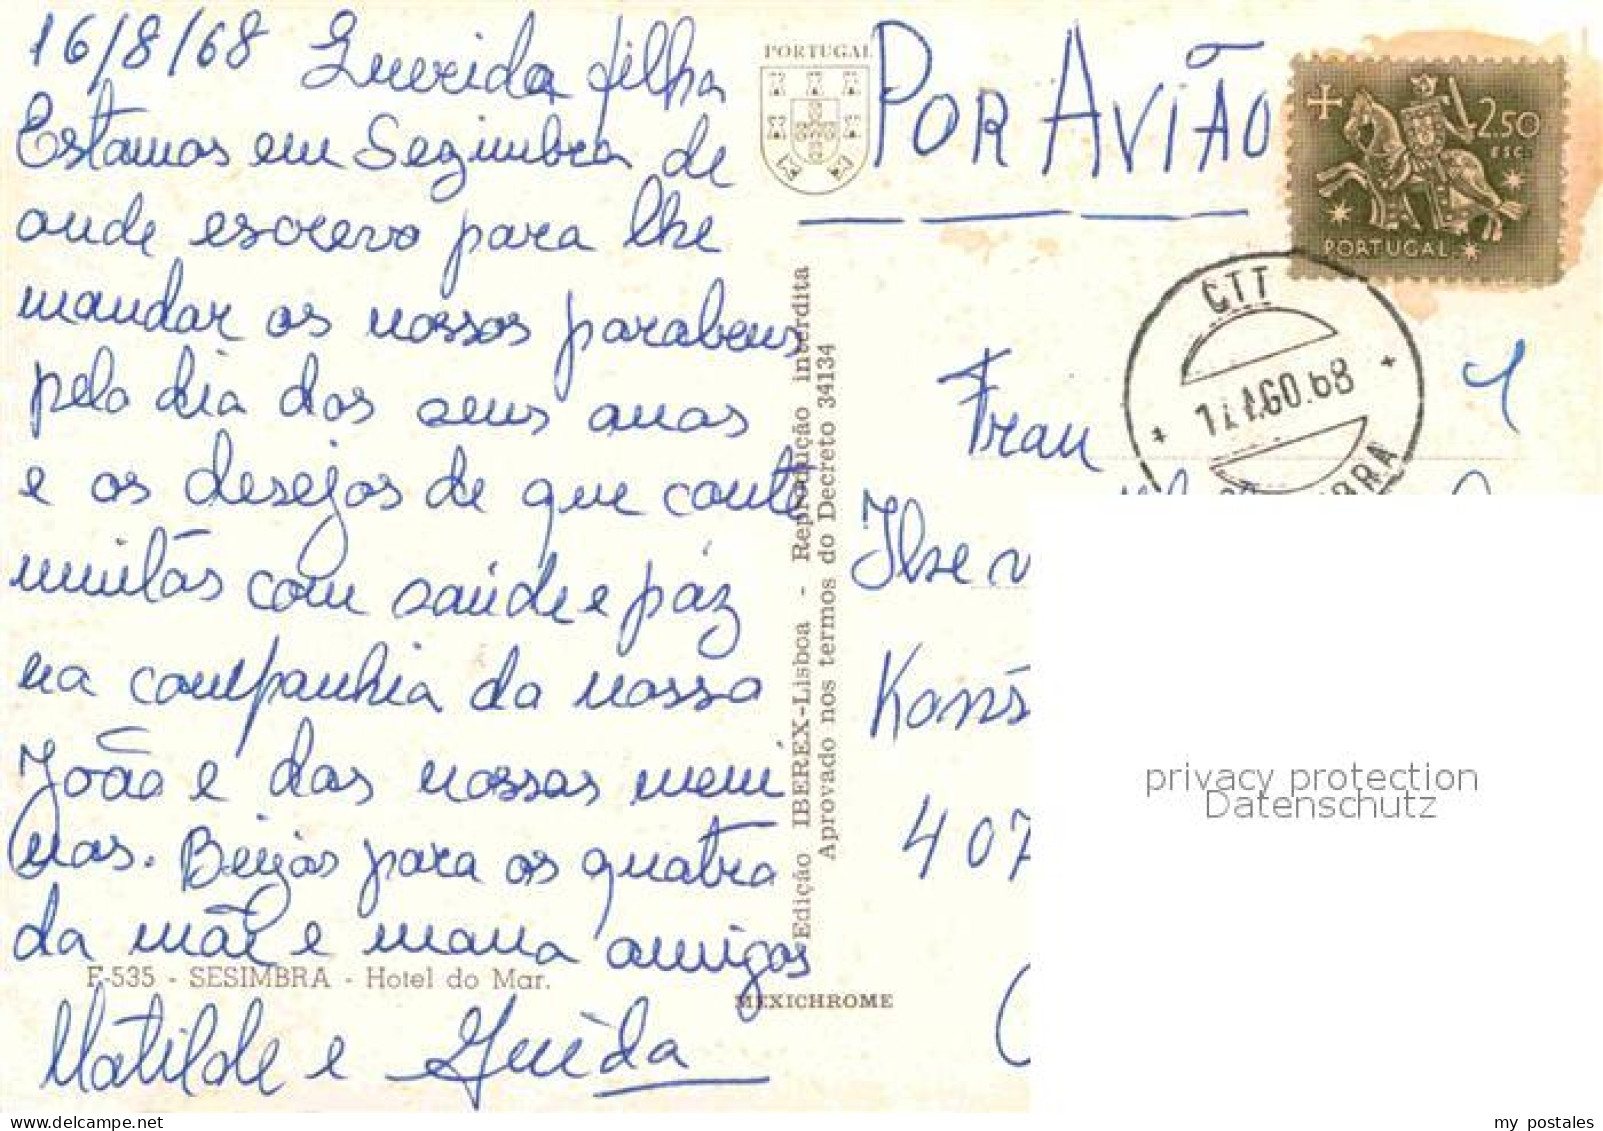 16/8/68 Querida filha
Estamos em Sezimbra de
onde escrevo para lhe
mandar os nossos parabens
pelo dia dos seus anos
e os desejos de que conte
muitãs com saúde e páz
na companhia da nossa
João e das nossas meni
nas. Beijos para os quatro
da mãe e mana amigas
Matilde e Guida
E-535 - SESIMBRA - Hotel do Mar.
MEXICHROME
Edição IBEREX-Lisboa - Reprodução interdita
Aprovado nos termos do Decreto 34134
PORTUGAL
POR AVIÃO
2.50
ESC.
PORTUGAL
CTT
17 AGO.68
BRA
Frau
Ilse v
Kons
407
privacy protection
Datenschutz
my postales